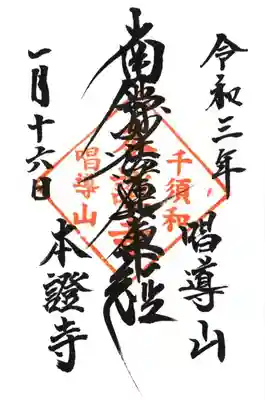 令和三年
唱導山
南無妙法蓮華経
千須和
唱導山
一月十六日
本證寺